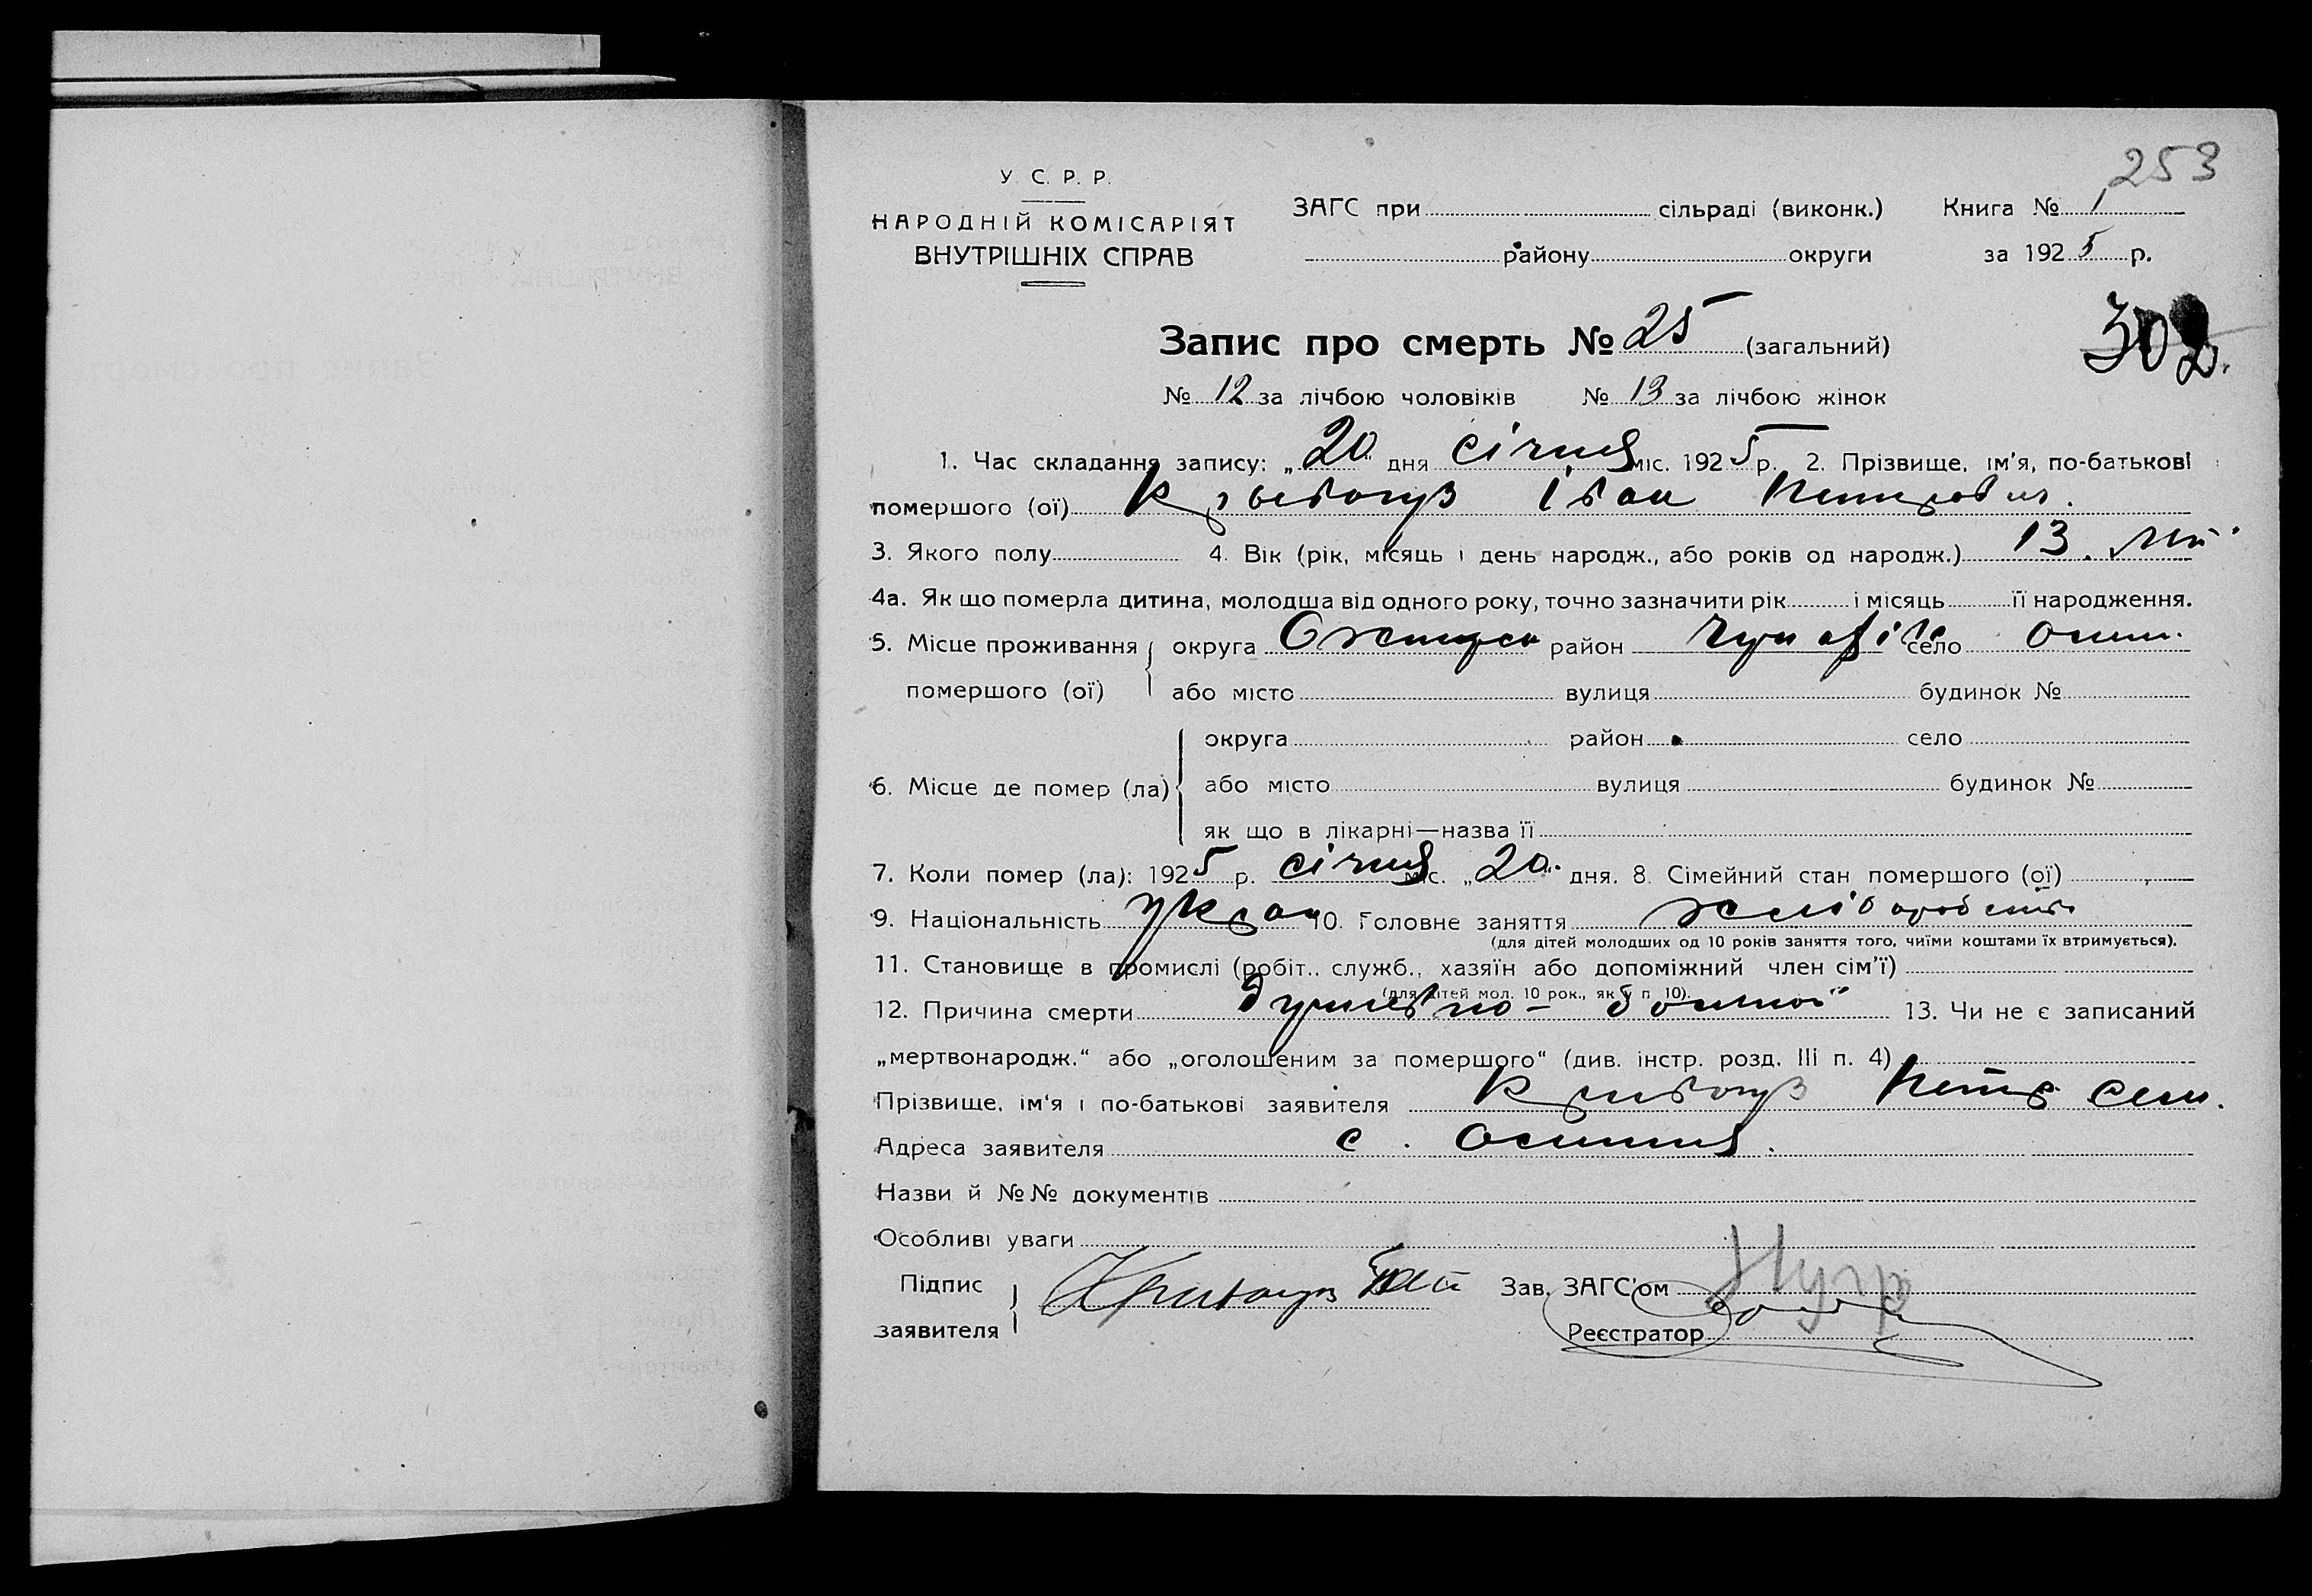 253
У. С. Р. Р.
НАРОДНІЙ КОМІСАРІЯТ
ВНУТРІШНІХ СПРАВ
ЗАГС при сільраді (виконк.) Книга № 1
району округи за 1925 р.
302
Запис про смерть № 25 (загальний)
№ 12 за лічбою чоловіків № 13 за лічбою жінок
1. Час складання запису: „20" дня січня міс. 1925 р. 2. Прізвище, ім'я, по-батькові
помершого (ої) Іван Петрович.
3. Якого полу 4. Вік (рік, місяць і день народж., або років од народж.) 13. літ
4а. Як що померла дитина, молодша від одного року, точно зазначити рік і місяць її народження.
5. Місце проживання округа район село
помершого (ої) або місто вулиця будинок №
округа район село
6. Місце де помер (ла) або місто вулиця будинок №
як що в лікарні—назва її
7. Коли помер (ла): 1925 р. січня міс. „20" дня. 8. Сімейний стан помершого (ої)
9. Національність Украй 10. Головне заняття
(для дітей молодших од 10 років заняття того, чиїми коштами їх втримується).
11. Становище в промислі (робіт., служб., хазяїн або допоміжний член сім'ї)
(для дітей мол. 10 рок., як у п. 10).
12. Причина смерти 13. Чи не є записаний
„мертвонародж." або „оголошеним за помершого" (див. інстр. розд. III п. 4)
Прізвище, ім'я і по-батькові заявителя Петр Сем.
Адреса заявителя с.
Назви й №№ документів
Особливі уваги
Підпис
заявителя
Зав. ЗАГС'ом
Реєстратор